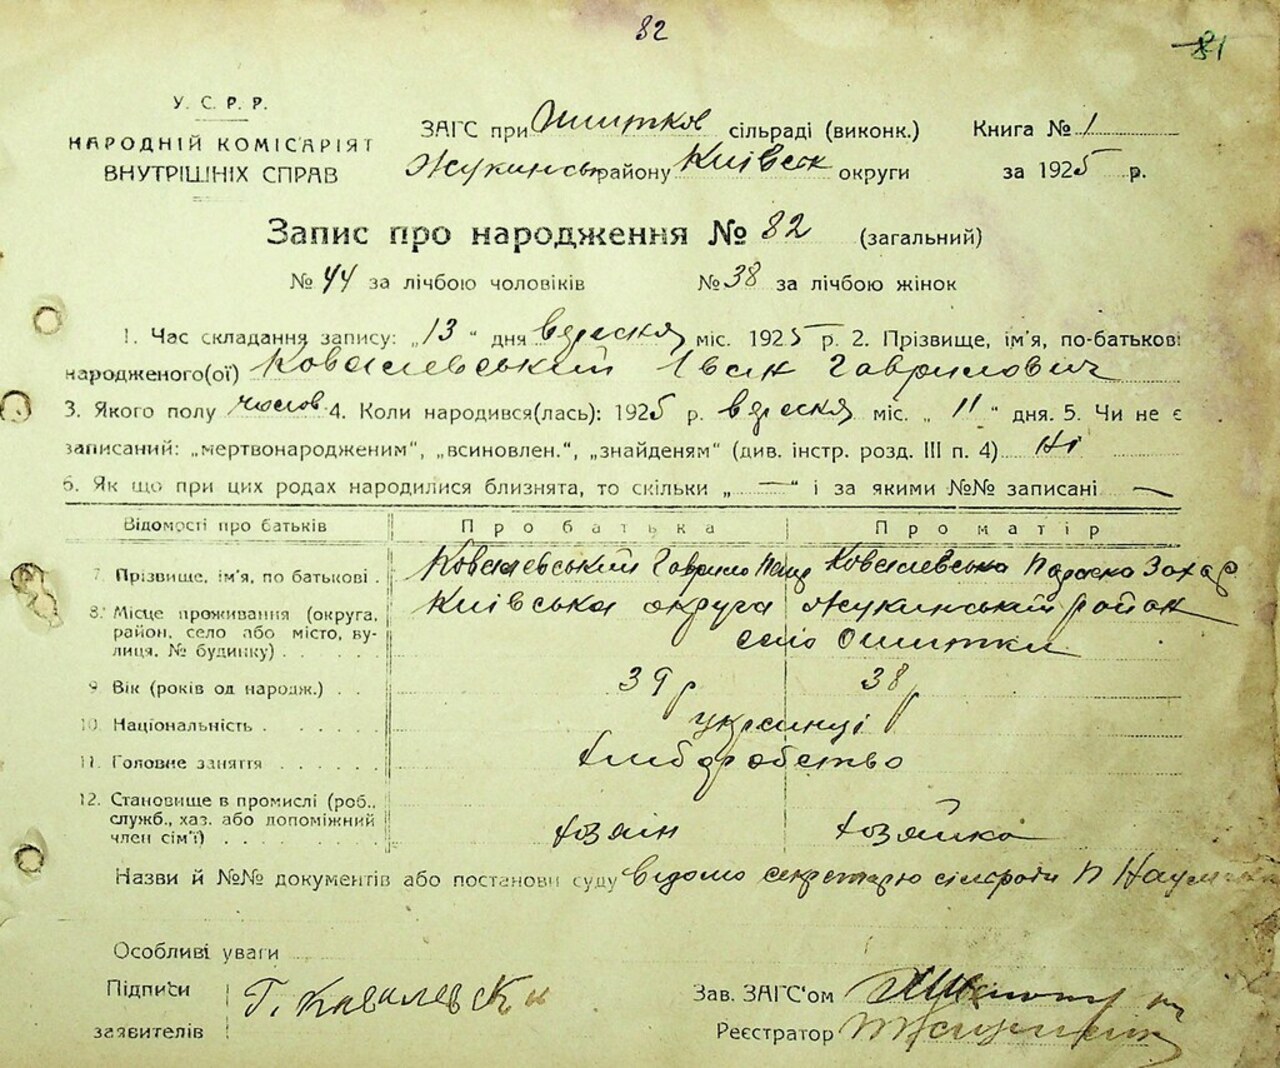 82
81
У. С. Р. Р.
НАРОДНІЙ КОМІСАРІЯТ
ВНУТРІШНІХ СПРАВ
ЗАГС при Ошитков сільраді (виконк.)
Жукинськ району Київськ округи
Книга № 1
за 1925 р.
Запис про народження № 82 (загальний)
№ 44 за лічбою чоловіків № 38 за лічбою жінок
1. Час складання запису: „13" дня вересня міс. 1925 р. 2. Прізвище, ім'я, по-батькові
народженого(ої) Ковалевський Іван Гаврилович
3. Якого полу чолов 4. Коли народився(лась): 1925 р. вересня міс. „11" дня. 5. Чи не є
записаний: „мертвонародженим", „всиновлен.", „знайденям" (див. інстр. розд. III п. 4) Ні
6. Як що при цих родах народилися близнята, то скільки „ — " і за якими №№ записані —
Відомості про батьків Про батька Про матір
7. Прізвище, ім'я, по батькові . Ковалевський Гаврило Ковалевська Параска Захар
8. Місце проживання (округа, Київська округа Жукинський район
район, село або місто, ву- село Ошитки
лиця, № будинку) . . . . .
9. Вік (років од народж.) . . 39 р 38 р
10. Національність . . . . . . українці
11. Головне заняття . . . . . . хліборобство
12. Становище в промислі (роб.,
служб., хаз. або допоміжний
член сім'ї) . . . . . . . . хозяін хозяйка
Назви й №№ документів або постанови суду Відомо секретарю сільради П
Особливі уваги
Підписи
заявителів
Г. Кавалевски
Зав. ЗАГС'ом
Реєстратор